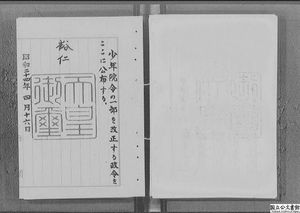 少年院令の一部を改正する政令を
ここに公布する。
裕仁
天皇
御璽
昭和三十四年四月十六日
国立公文書館